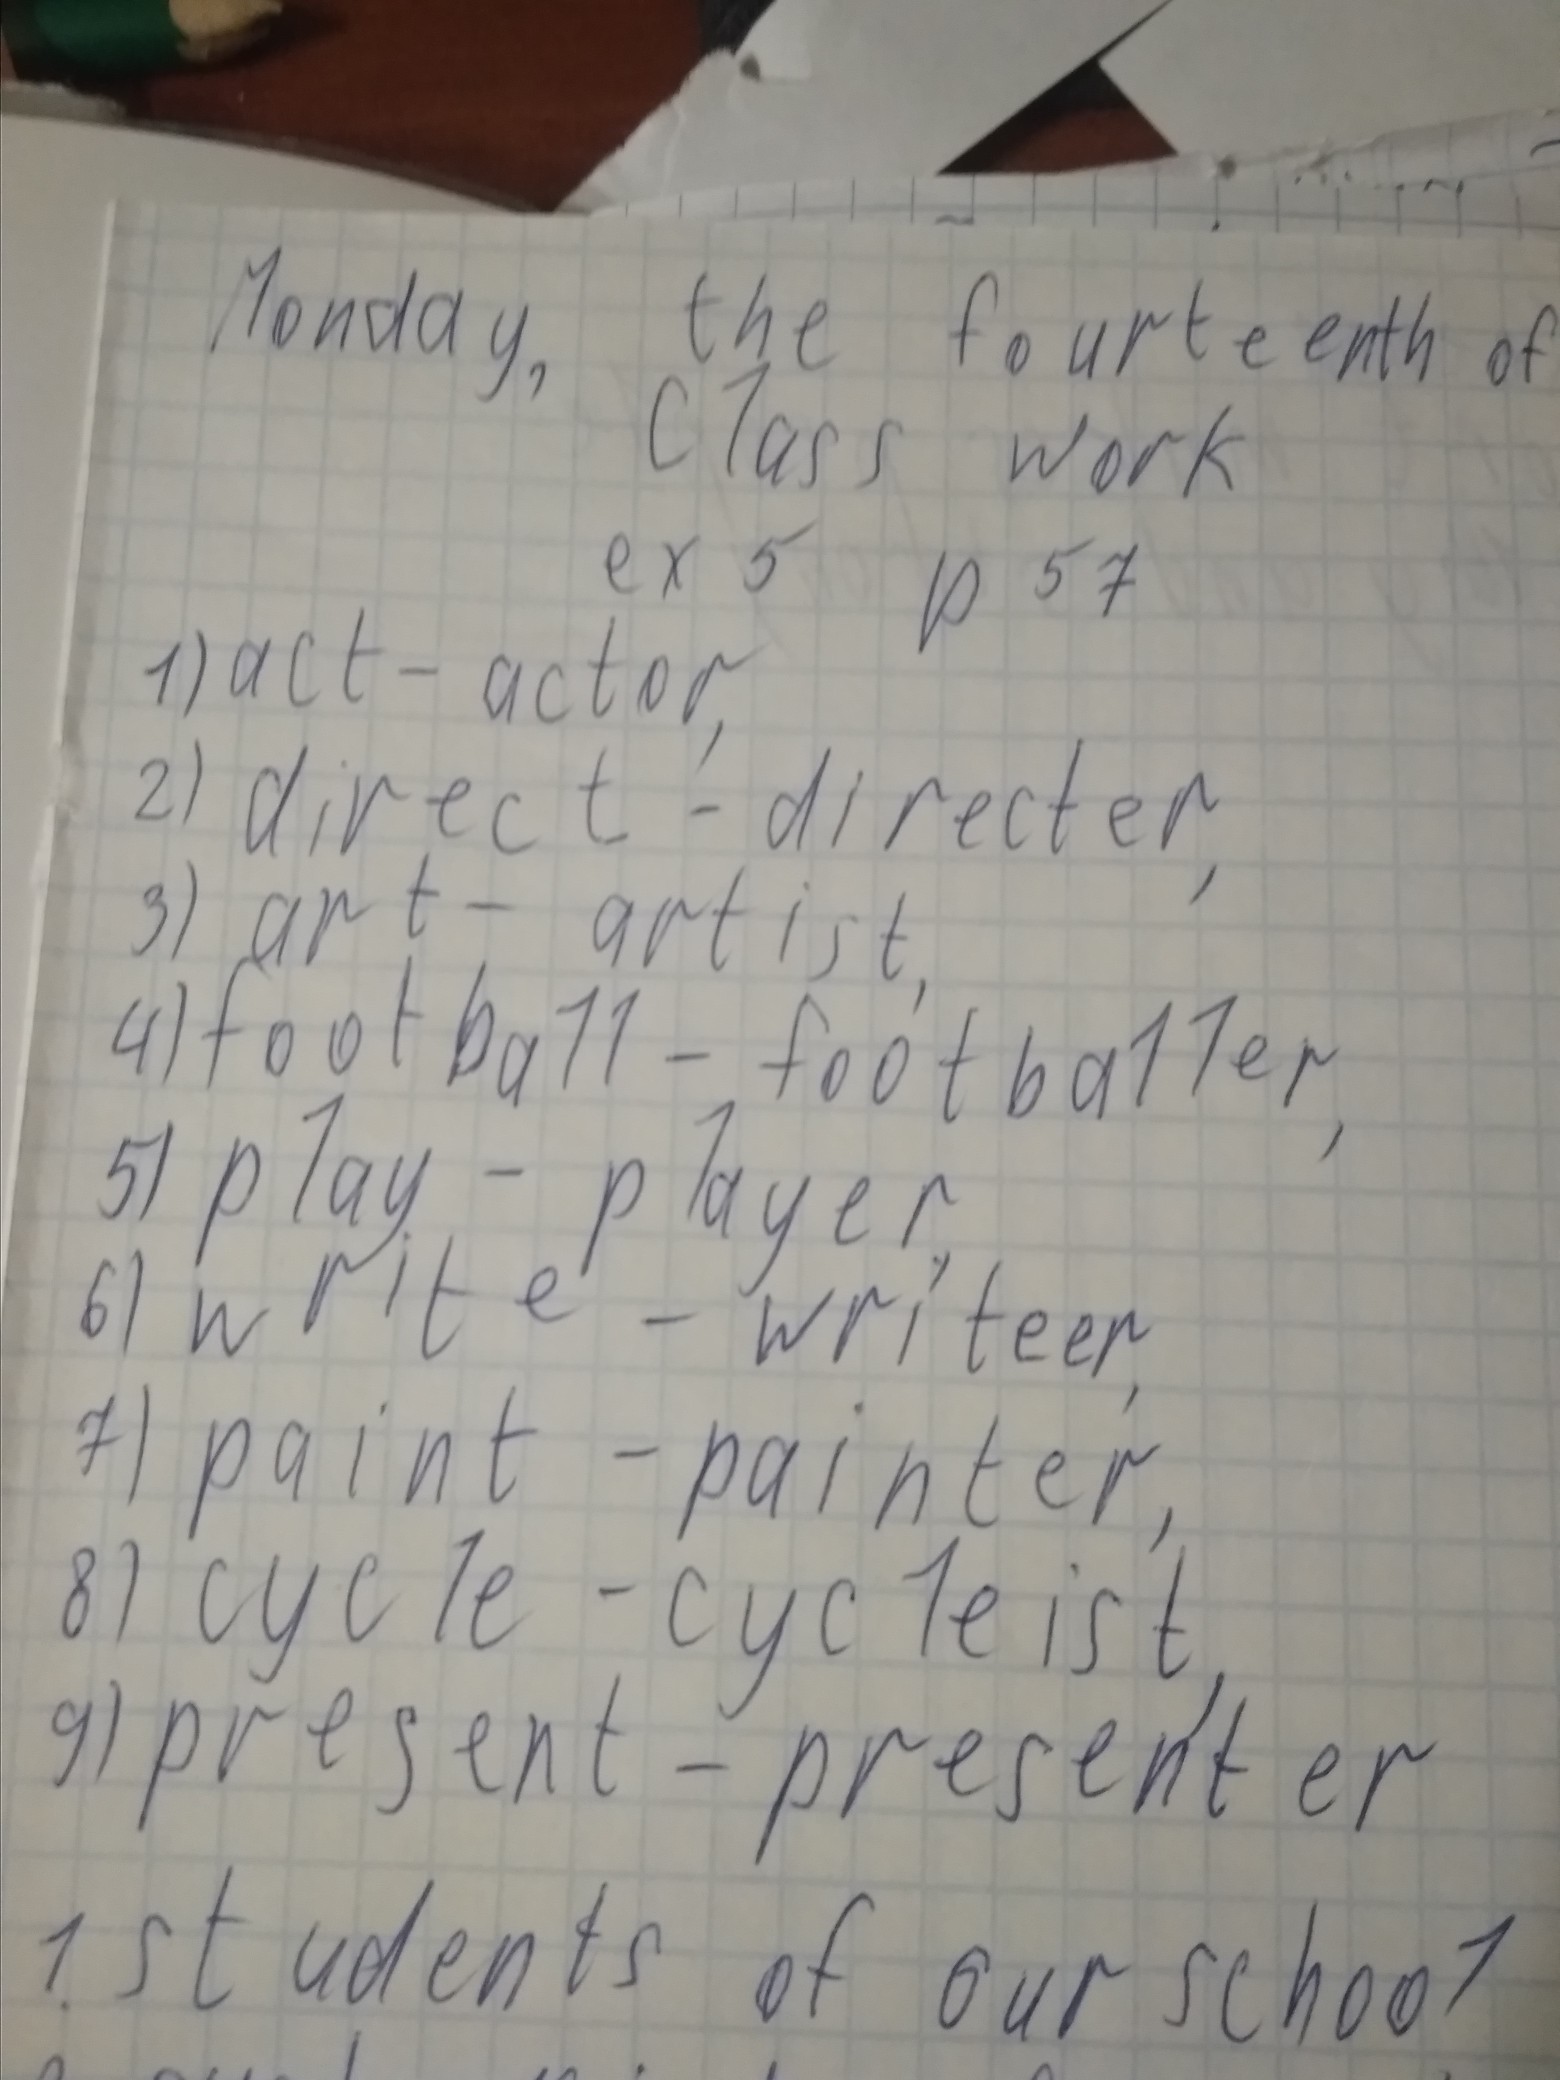 Monday, the fourteenth of
Class work
ex 5 p 57
1) act - actor,
2) direct - directer,
3) art - artist,
4) football - footballer,
5) play - player,
6) write - writeer,
7) paint - painter,
8) cycle - cycleist,
9) present - presenter
1. students of our school